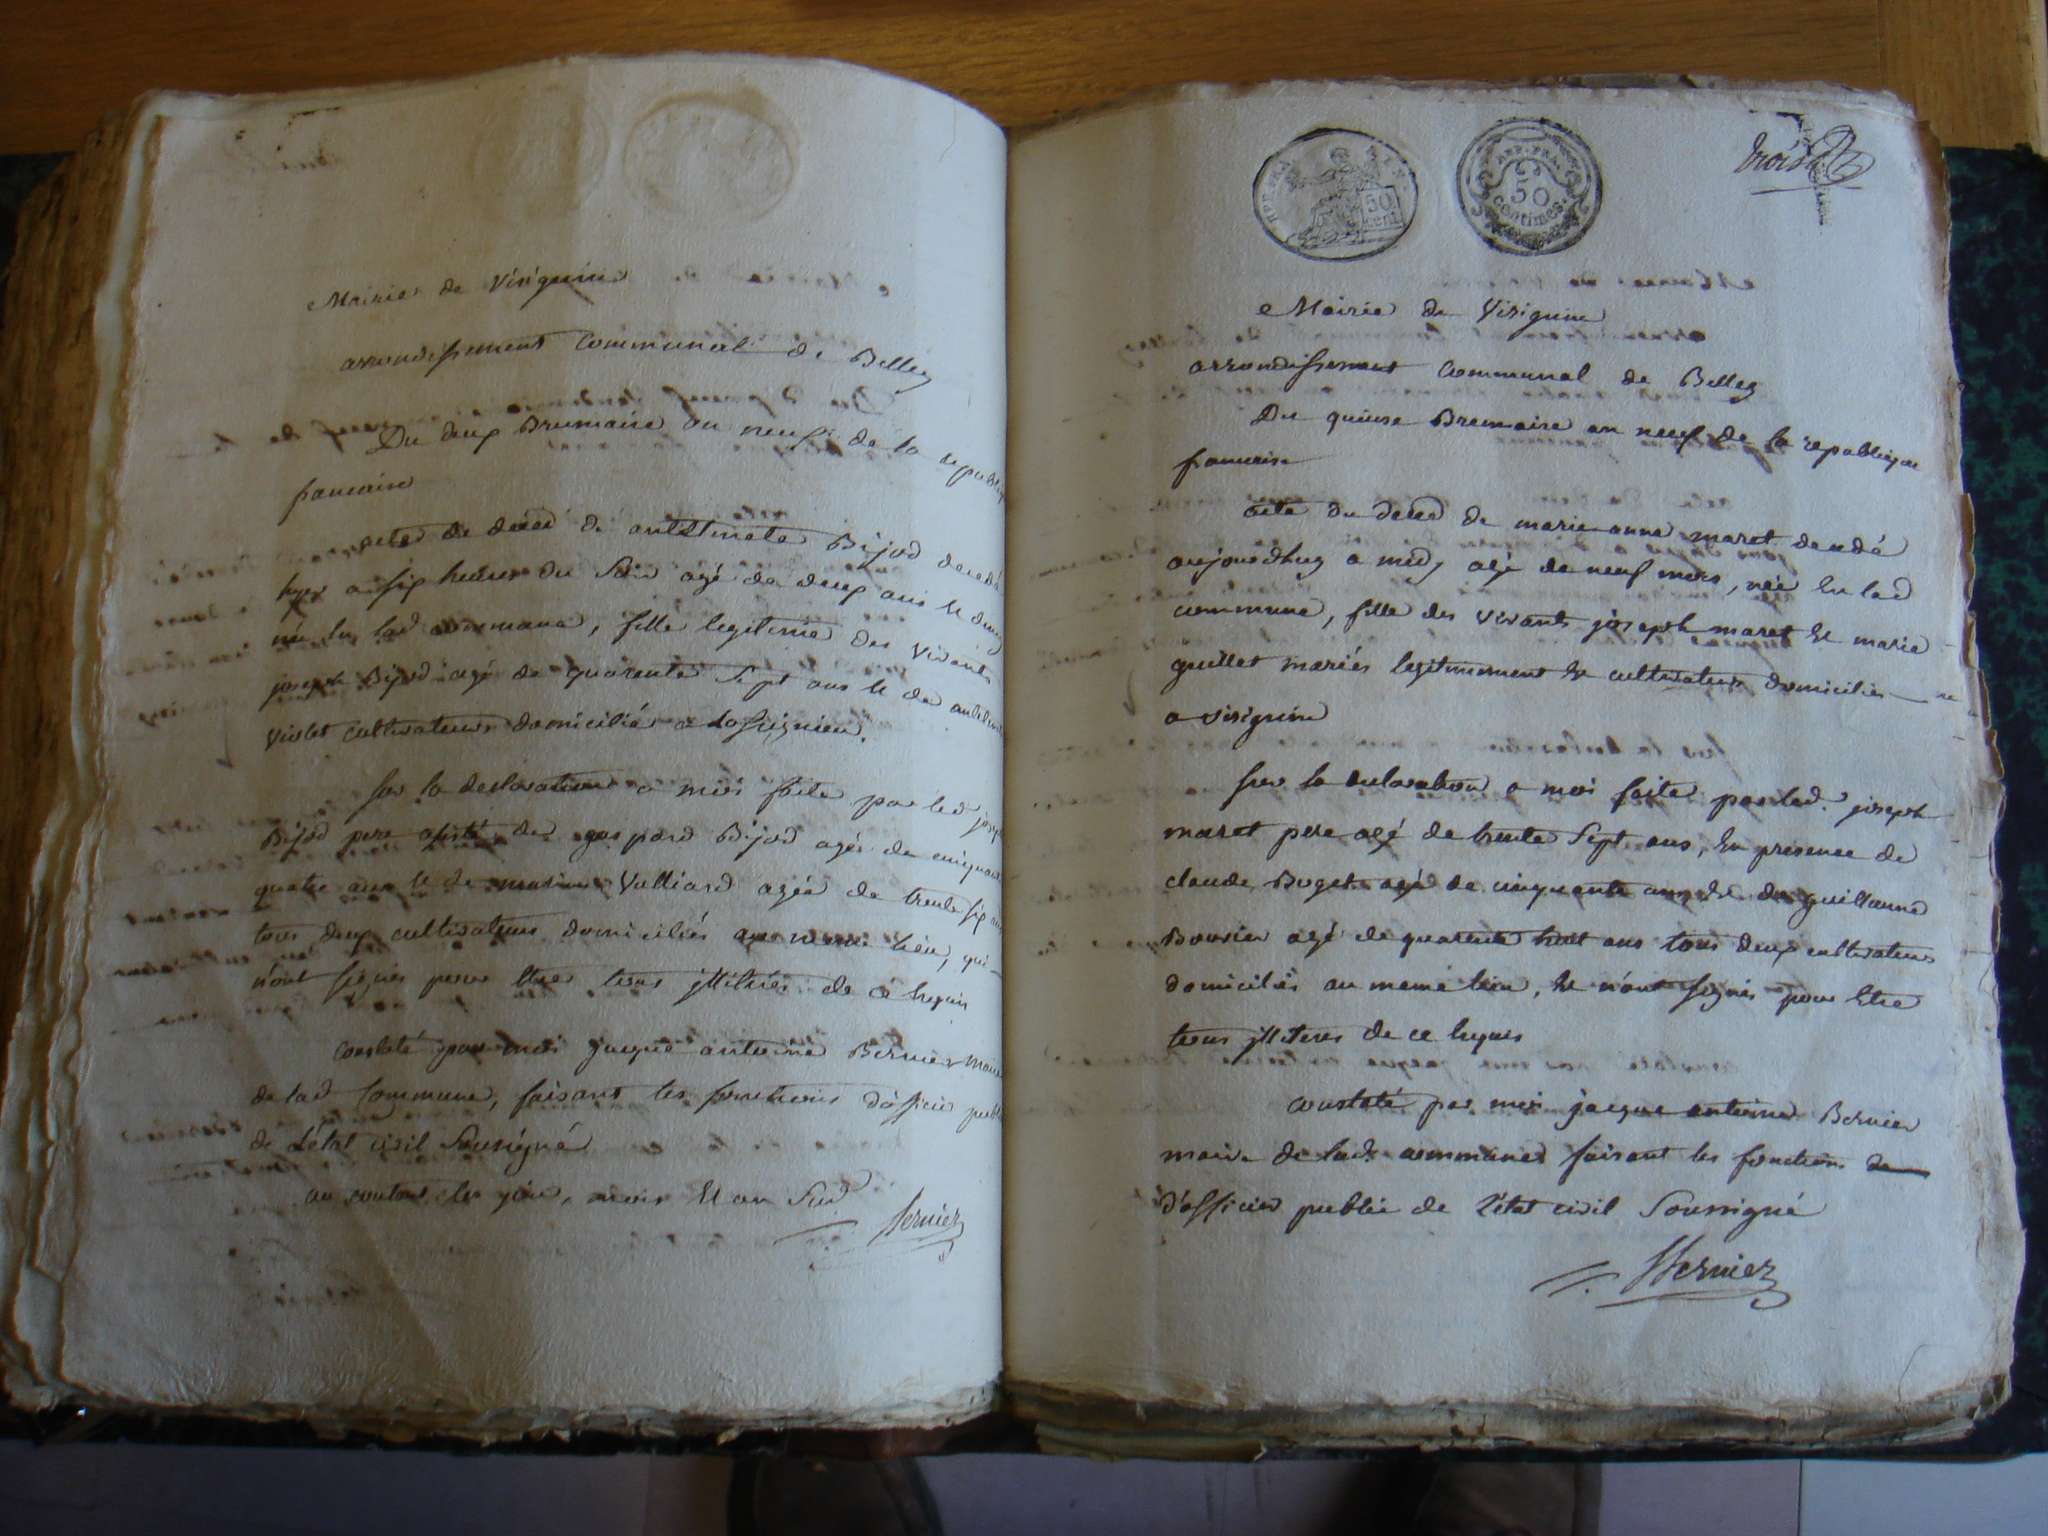 Mairie de Virignin
arrondissement Communal de Belley
Du deux Brumaire an neuf de la republiq
francaise
acte de deced de anthelmete Bijod decedé
hyer a six heures du Soir agé de deux ans et demy
née en lad commune, fille legitime des vivants
joseph Bijod agé de quarente Sept ans et de
violet cultivateurs domiciliés a
sur la declaration a moi faite par led josep
Bijod pere assisté de gaspard Bijod agé de cinquante
quatre ans et de Vulliard agée de trente six ans
tous deux cultivateurs domiciliés au meme lieu, qui
n'ont signés pour etre tous illiterés de ce requis
constaté par moi jacque antoine Bernier maire
de lad Commune, faisant les fonctions d'officier publ
de L'état civil Soussigné
les jour, mois et an Sud
Bernier
REP. FRA.
50 cent.
REP. FRA.
50
centimes.
trois
Mairie de Virignin
arrondissement communal de Belley
Du quinse Brumaire an neuf de la republique
francaise
acte du deced de marie anne maret decedé
aujourdhuy a midy agé de neuf mois, née en lad
commune, fille des vivants joseph maret et marie
guillet mariés legitimement et cultivateurs domiciliés
a virignin
sur la declaration a moi faite par led. joseph
maret pere agé de trente Sept ans, en presence de
claude Boget agé de cinquante ans et de guillaume
Bovier agé de quarente huit ans tous deux cultivateurs
domiciliés au meme lieu, et n'ont signés pour etre
tous illiteres de ce requis
constaté par moi jacque antoine Bernier
maire de lad. commune faisant les fonctions de
d'officier public de l'état civil Soussigné
Bernier